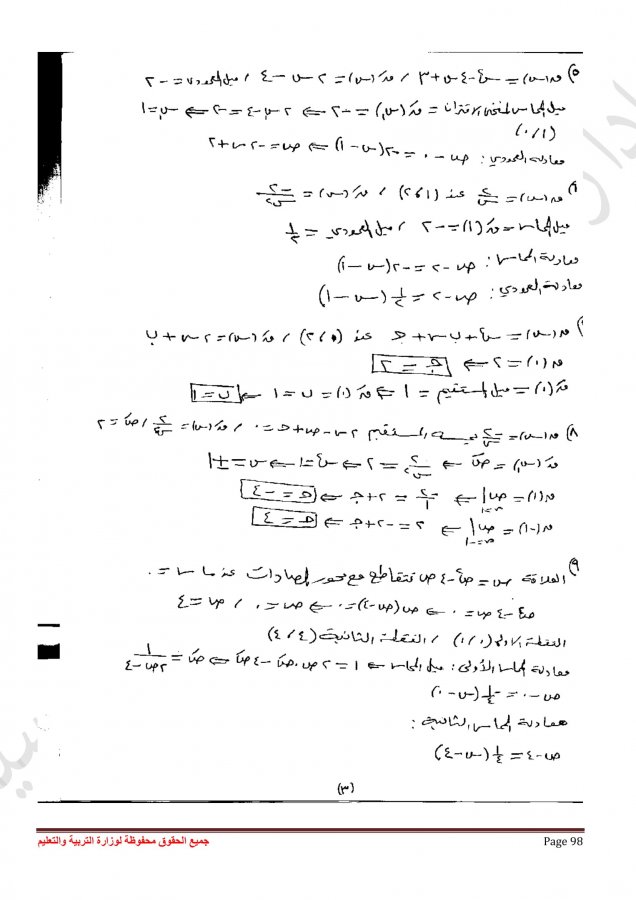 ٥) ق(س) = س² - ٤س + ٣ ، ق́(س) = ٢س - ٤ ، ميل العمودي = -٢
ميل المماس لمنحنى الاقتران = ق́(س) = -٢ ⇐ ٢س - ٤ = -٢ ⇐ س = ١
(١ ، ٠)
معادلة العمودي : ص - ٠ = -٢(س - ١) ⇐ ص = -٢س + ٢
ق(س) = ٢/س عند (١ ، ٢) ، ق́(س) = -٢/س²
ميل المماس = ق́(١) = -٢ ، ميل العمودي = ١/٢
معادلة المماس : ص - ٢ = -٢(س - ١)
معادلة العمودي : ص - ٢ = ١/٢ (س - ١)
ق(س) = س² + ب س + جـ عند (٠ ، ٢) ، ق́(س) = ٢س + ب
ق(٠) = ٢ ⇐ جـ = ٢
ق́(٠) = ميل المستقيم = ١ ⇐ ق́(٠) = ب = ١ ⇐ ب = ١
٨) ق(س) = -٢/س يمسه المستقيم ٢س - ص + جـ = ٠ ، ق́(س) = ٢/س² ، ص́ = ٢
ق́(س) = ص́ ⇐ ٢/س² = ٢ ⇐ س² = ١ ⇐ س = ±١
ق(١) = ص|س=١ ⇐ -٢/١ = ٢ + جـ ⇐ جـ = -٤
ق(-١) = ص|س=-١ ⇐ ٢ = -٢ + جـ ⇐ جـ = ٤
٩) العلاقة س = ص² - ٤ص تتقاطع مع محور الصادات عندما س = ٠
ص² - ٤ص = ٠ ⇐ ص(ص - ٤) = ٠ ⇐ ص = ٠ ، ص = ٤
النقطة الاولى (٠ ، ٠) ، النقطة الثانية (٤ ، ٤)
معادلة المماس الأولى : ميل المماس ⇐ ١ = ٢ص . ص́ - ٤ص́ ⇐ ص́ = ١/(٢ص - ٤)
ص - ٠ = -١/٤ (س - ٠)
معادلة المماس الثانية :
ص - ٤ = ١/٤ (س - ٤)
(٣)
جميع الحقوق محفوظة لوزارة التربية والتعليم
Page 98